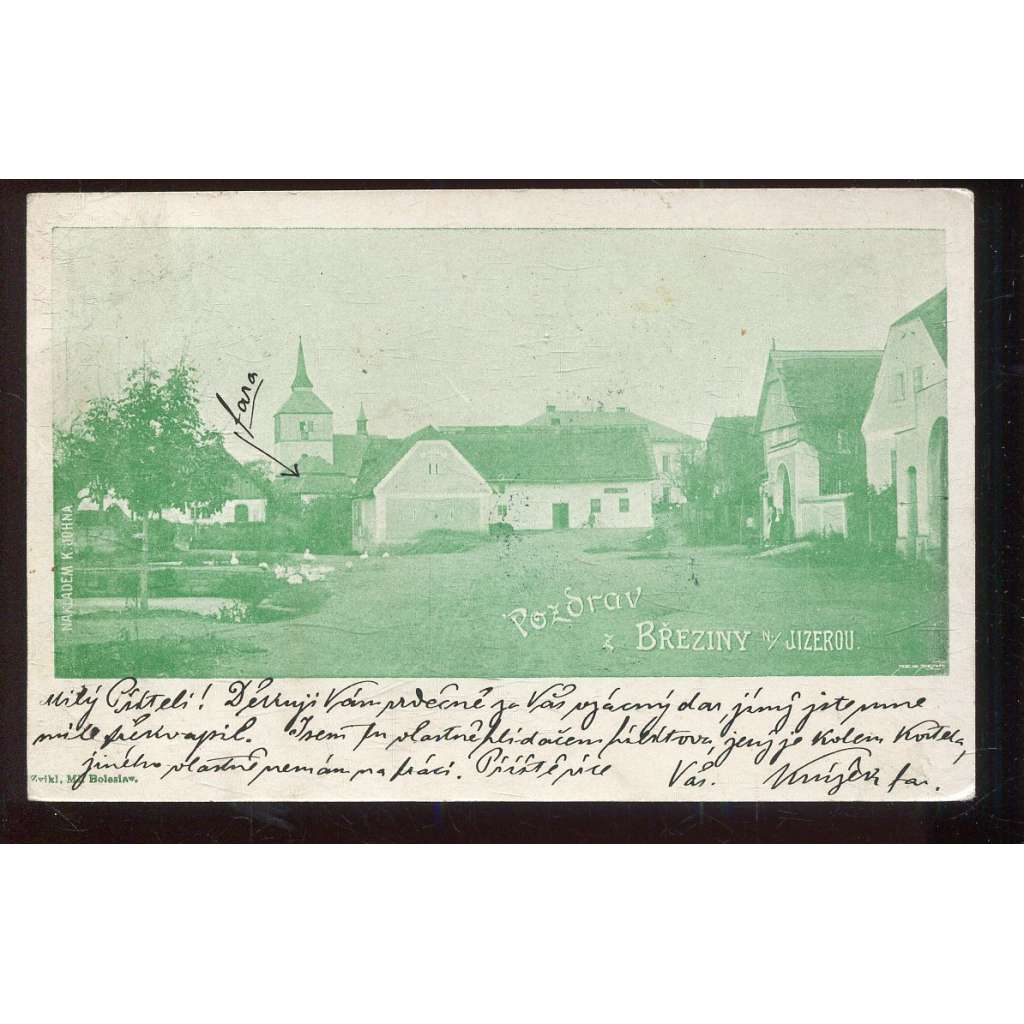 fara
NÁKLADEM K. JOHNA
Pozdrav
z BŘEZINY N/ JIZEROU.
Milý Příteli! Děkuji Vám srdečně za Váš vzácný dar, jímž jste mne
mile překvapil. Jsem tu vlastně hlídačem, jenž je kolem Kostela,
jiného vlastně nemám na práci. Příště více Váš.
Zvikl, Ml. Boleslav.